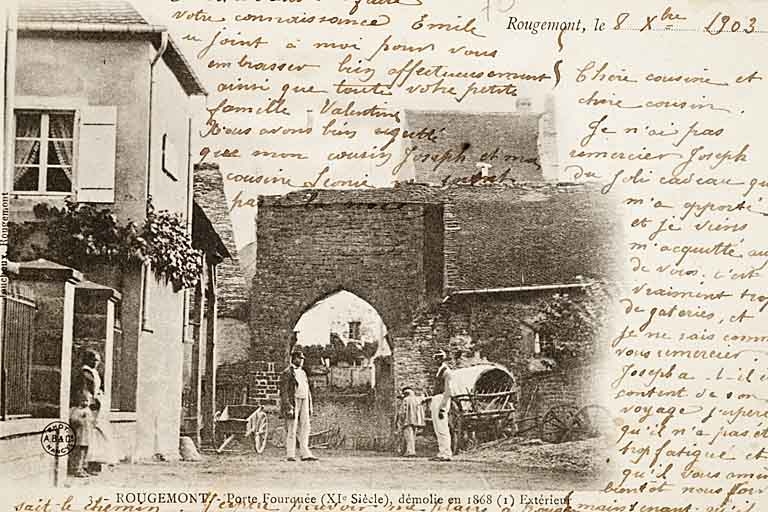 Rougemont, le 8 Xbre 1903
Chère cousine et
chère cousin.
Je n'ai pas
remercier Joseph
Du Joli cadeau qu
m'a apporté
et je viens
m'acquitté au
de vous. c'est
vraiment trop
de gateries, et
je ne sais comm
vous remercier
Joseph a-t-il é
content de son
voyage
qu'il n'a pas ét
trop fatigué et
qu'il vous
bientôt
maintenant qu'il
sait le chemin.
faire
votre connaissance Emile
joint à moi pour vous
embrasser bien affectueusement
ainsi que toute votre petite
famille - Valentine
Nous avons bien
que mon cousin Joseph et ma
cousine Leonie
pas
3 - ROUGEMONT - Porte Fourquée (XIe Siècle), démolie en 1868 (1) Extérieur
Rougemont
PHOT
A.B.&C
NANCY